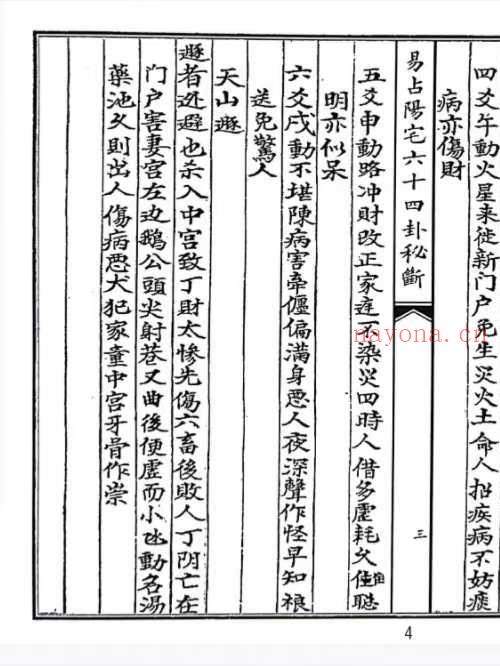 四爻午動火星来徙新门户免生灾火土命人招疾病不妨痰
病亦傷財
易占陽宅六十四卦秘斷
三
五爻申動路冲財改正家庭不染災四時人借多虚耗久住聪
明亦似呆
六爻戌動不堪陳病害牽偏满身恶人夜深聲作怪早知禳
送免驚人
天山遯
遯者迯避也杀入中宫致丁財太惨先傷六畜後敗人丁阴亡在
门户害妻宫左边鵝公頭尖射巷又曲後便虚而小氹動名湯
藥池久則出人傷病恶犬犯家童中宫牙骨作祟
nayona.cn
4